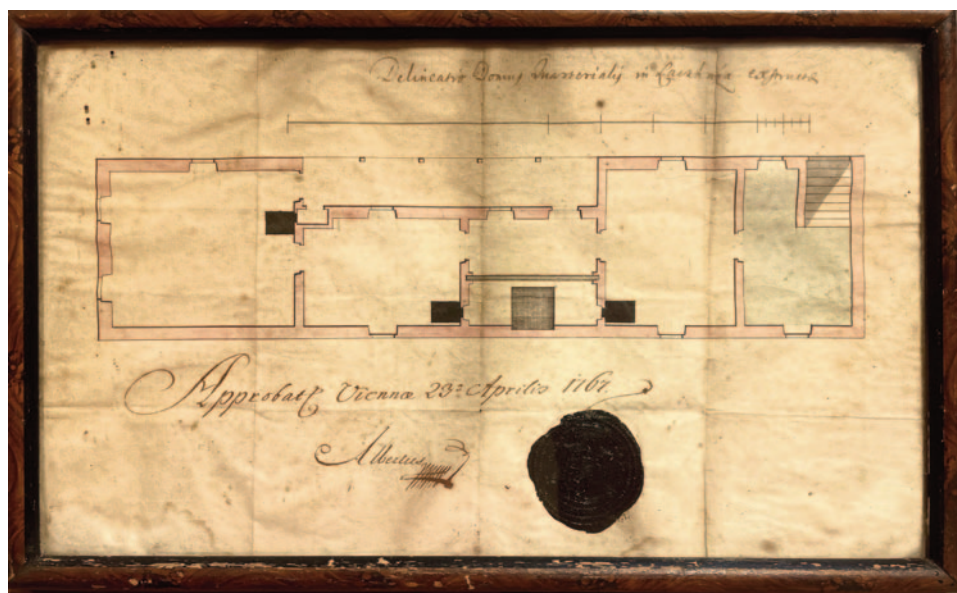 Delineatio Domus in Lacshaza extructa
Approbat Viennæ 23ª Aprilis 1767
Albertus